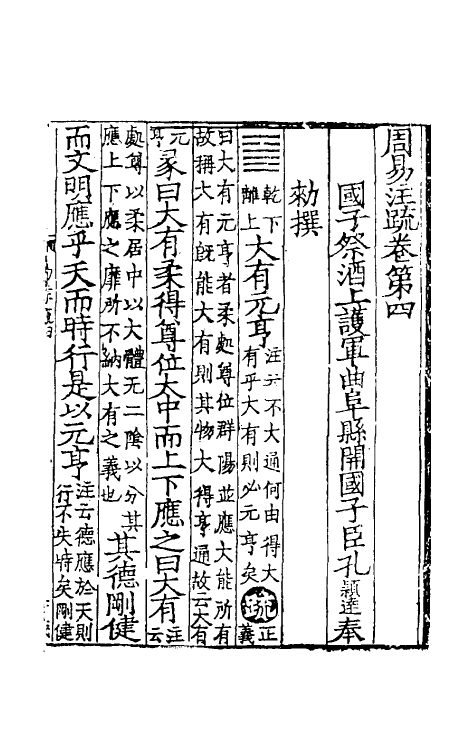 周易注疏卷第四
國子祭酒上護軍曲阜縣開國子臣孔穎達奉
勑撰
乾下
離上
大有元亨
注云不大通何由得大
有乎大有則必元亨矣
疏
正
義
曰大有元亨者柔處尊位群陽並應大能所有
故稱大有旣能大有則其物大得亨通故云大有
元
亨
彖曰大有柔得尊位大中而上下應之曰大有
注
云
處尊以柔居中以大體无二隂以分其
應上下應之靡所不納大有之義也
其德剛健
而文明應乎天而時行是以元亨
注云德應於天則
行不失時矣剛健